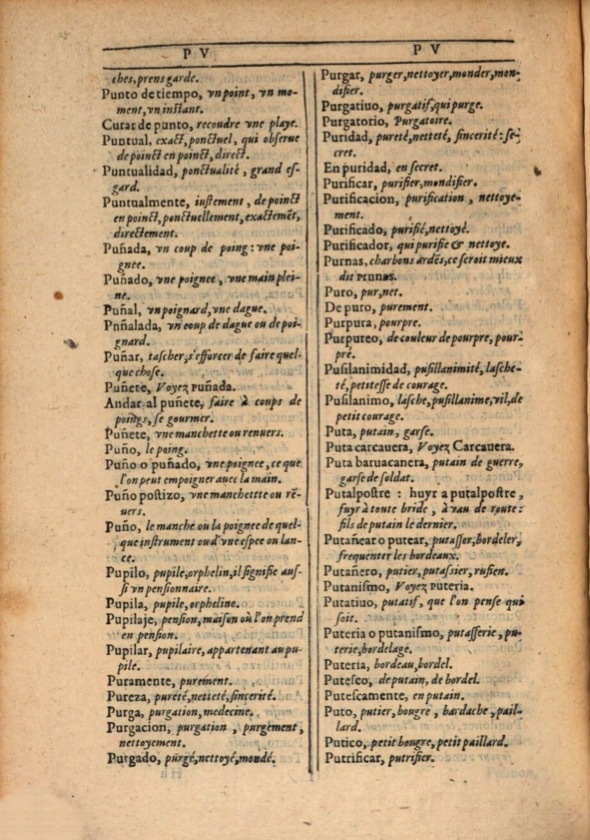 P V
ches, prens garde.
Punto de tiempo, vn point, vn mo-
ment, vn instant.
Curar de punto, recoudre vne playe.
Puntual, exact, ponctuel, qui obserue
de poinct en poinct, direct.
Puntualidad, ponctualité, grand es-
gard.
Puntualmente, iustement, de poinct
en poinct, ponctuellement, exactemẽt,
directement.
Puñada, vn coup de poing : vne poi-
gnee.
Puñado, vne poignee, vne main plei-
ne.
Puñal, vn poignard, vne dague.
Pnñalada, vn coup de dague ou de poi-
gnard.
Puñar, tascher, s'efforcer de faire quel-
que chose.
Puñete, Voyez Puñada.
Andar al puñete, faire à coups de
poings, se gourmer.
Puñete, vne manchette ou renuers.
Puño, le poing.
Puño o puñado, vne poignee, ce que
l'on peut empoigner auec la main.
Puño postizo, vne manchettte ou rẽ-
uers.
Puño, le manche ou la poignee de quel-
que instrument ou d'vne espee ou lan-
ce.
Pupilo, pupile, orphelin, il signifie aus-
si vn pensionnaire.
Pupila, pupile, orpheline.
Pupilaje, pension, maison où l'on prend
en pension.
Pupilar, pupilaire, appartenant au pu-
pile.
Puramente, purement.
Pureza, pureté, netteté, sincerité.
Purga, purgation, medecine.
Purgacion, purgation, purgement,
nettoyement.
Purgado, purgé, nettoyé, mondé.
P V
Purgar, purger, nettoyer, monder, mon-
difier.
Purgatiuo, purgatif, qui purge.
Purgatorio, Purgatoire.
Puridad, pureté, netteté, sincerité : se-
cret.
En puridad, en secret.
Purificar, purifier, mondifier.
Purificacion, purification, nettoye-
ment.
Purificado, purifié, nettoyé.
Purificador, qui purifie & nettoye.
Purnas, charbons ardẽs, ce seroit mieux
dit Prunas.
Puro, pur, net.
De puro, purement.
Purpura, pourpre.
Purpureo, de couleur de pourpre, pour-
pré.
Pusilanimidad, pusillanimité, lasche-
té, petitesse de courage.
Pusilanimo, lasche, pusillanime, vil, de
petit courage.
Puta, putain, garse.
Puta carcauera, Voyez Carcauera.
Puta baruacanera, putain de guerre,
garse de soldat.
Putalpostre : huyr a putalpostre,
fuyr à toute bride, à vau de route :
fils de putain le dernier.
Putañear o putear, putasser, bordeler,
frequenter les bordeaux.
Putañero, putier, putassier, rufien.
Putanismo, Voyez Puteria.
Putatiuo, putatif, que l'on pense qui
soit.
Puteria o putanismo, putasserie, pu-
terie, bordelage.
Puteria, bordeau, bordel.
Putesco, de putain, de bordel.
Putescamente, en putain.
Puto, putier, bougre, bardache, pail-
lard.
Putico, petit bougre, petit paillard.
Putrificar, putrifier.